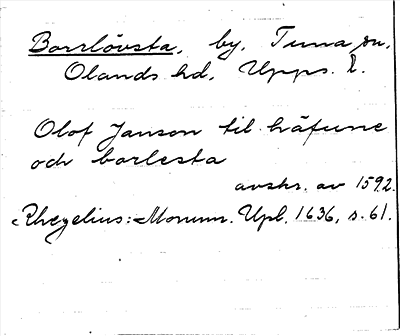 Borrlövsta, by, Tuna sn,
Olands hd, Upps. l.
Olof Janson til håfune
och borlesta
avskr. av 1592.
Rhezelius: Monum. Upl. 1636, s. 61.